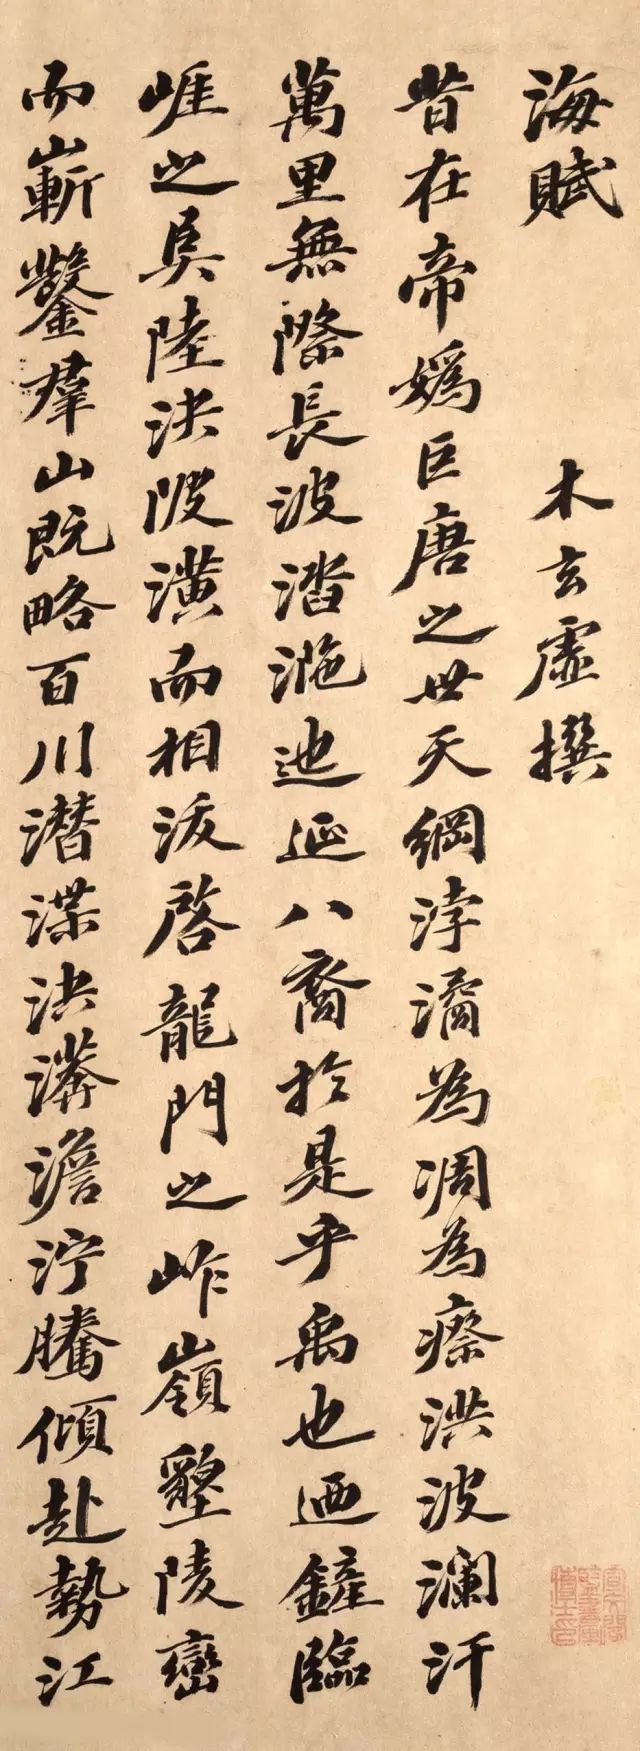 海賦 木玄虛撰
昔在帝媯巨唐之世天綱浡潏為凋為瘵洪波瀾汗
萬里無際長波涾湤迆延八裔於是乎禹也迺鏟臨
崕之阜陸決陂潢而相沷啓龍門之岞嶺墾陵巒
而嶄鑿羣山既略百川潛渫決漭澹泞騰傾赴勢江